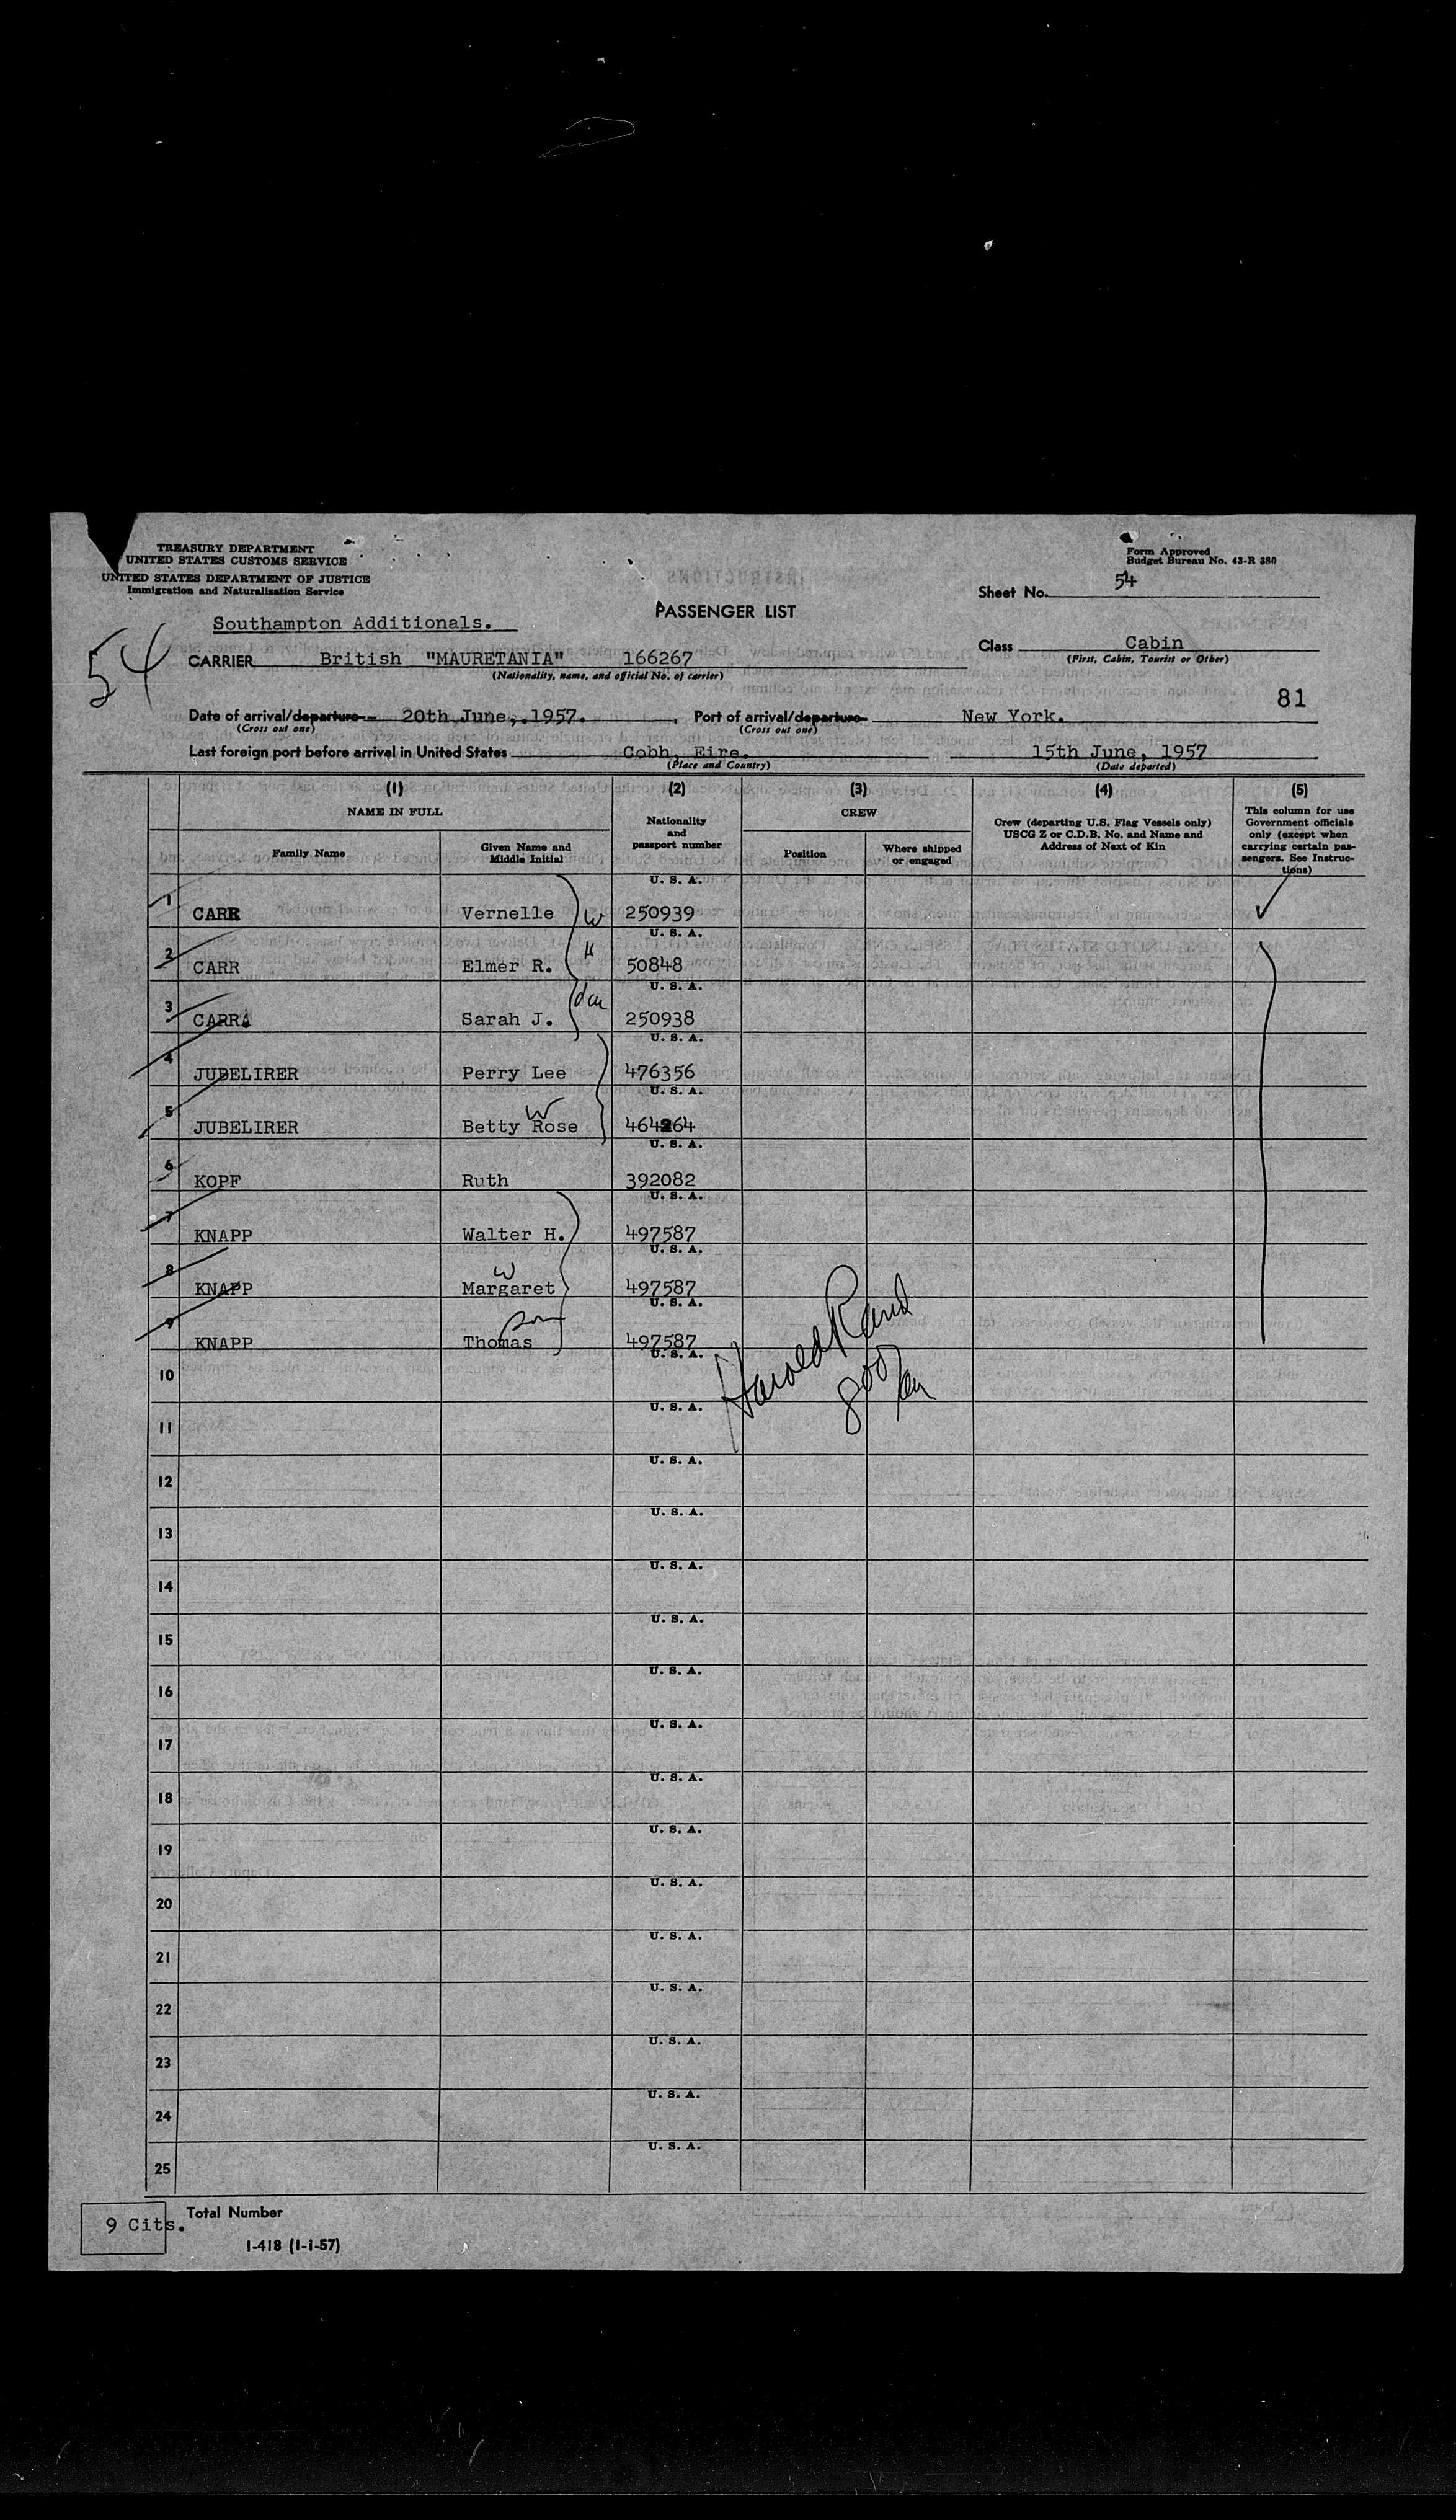 TREASURY DEPARTMENT
UNITED STATES CUSTOMS SERVICE
UNITED STATES DEPARTMENT OF JUSTICE
Immigration and Naturalization Service
Form Approved
Budget Bureau No. 43-R 380
PASSENGER LIST
Sheet No. 54
Southampton Additionals.
54
CARRIER British "MAURETANIA" 166267
(Nationality, name, and official No. of carrier)
Class Cabin
(First, Cabin, Tourist or Other)
81
Date of arrival/departure 20th June, 1957. Port of arrival/departure New York.
(Cross out one) (Cross out one)
Last foreign port before arrival in United States Cobh, Eire. 15th June, 1957
(Place and Country) (Date departed)
(1) (2) (3) (4) (5)
NAME IN FULL
Family Name
Given Name and Middle Initial
Nationality and passport number
CREW
Position
Where shipped or engaged
Crew (departing U.S. Flag Vessels only) USCG Z or C.D.B. No. and Name and Address of Next of Kin
This column for use Government officials only (except when carrying certain passengers. See Instructions)
U. S. A.
1 CARR Vernelle W 250939
U. S. A.
2 CARR Elmer R. H 50848
U. S. A.
3 CARR Sarah J. dau 250938
U. S. A.
4 JUBELIRER Perry Lee 476356
U. S. A.
W
5 JUBELIRER Betty Rose 464264
U. S. A.
6 KOPF Ruth 392082
U. S. A.
7 KNAPP Walter H. 497587
U. S. A.
W
8 KNAPP Margaret 497587
U. S. A.
son
9 KNAPP Thomas 497587
Harold Rand
800
U. S. A.
10
U. S. A.
11
U. S. A.
12
U. S. A.
13
U. S. A.
14
U. S. A.
15
U. S. A.
16
U. S. A.
17
U. S. A.
18
U. S. A.
19
U. S. A.
20
U. S. A.
21
U. S. A.
22
U. S. A.
23
U. S. A.
24
U. S. A.
25
9 Cits. Total Number
I-418 (1-1-57)